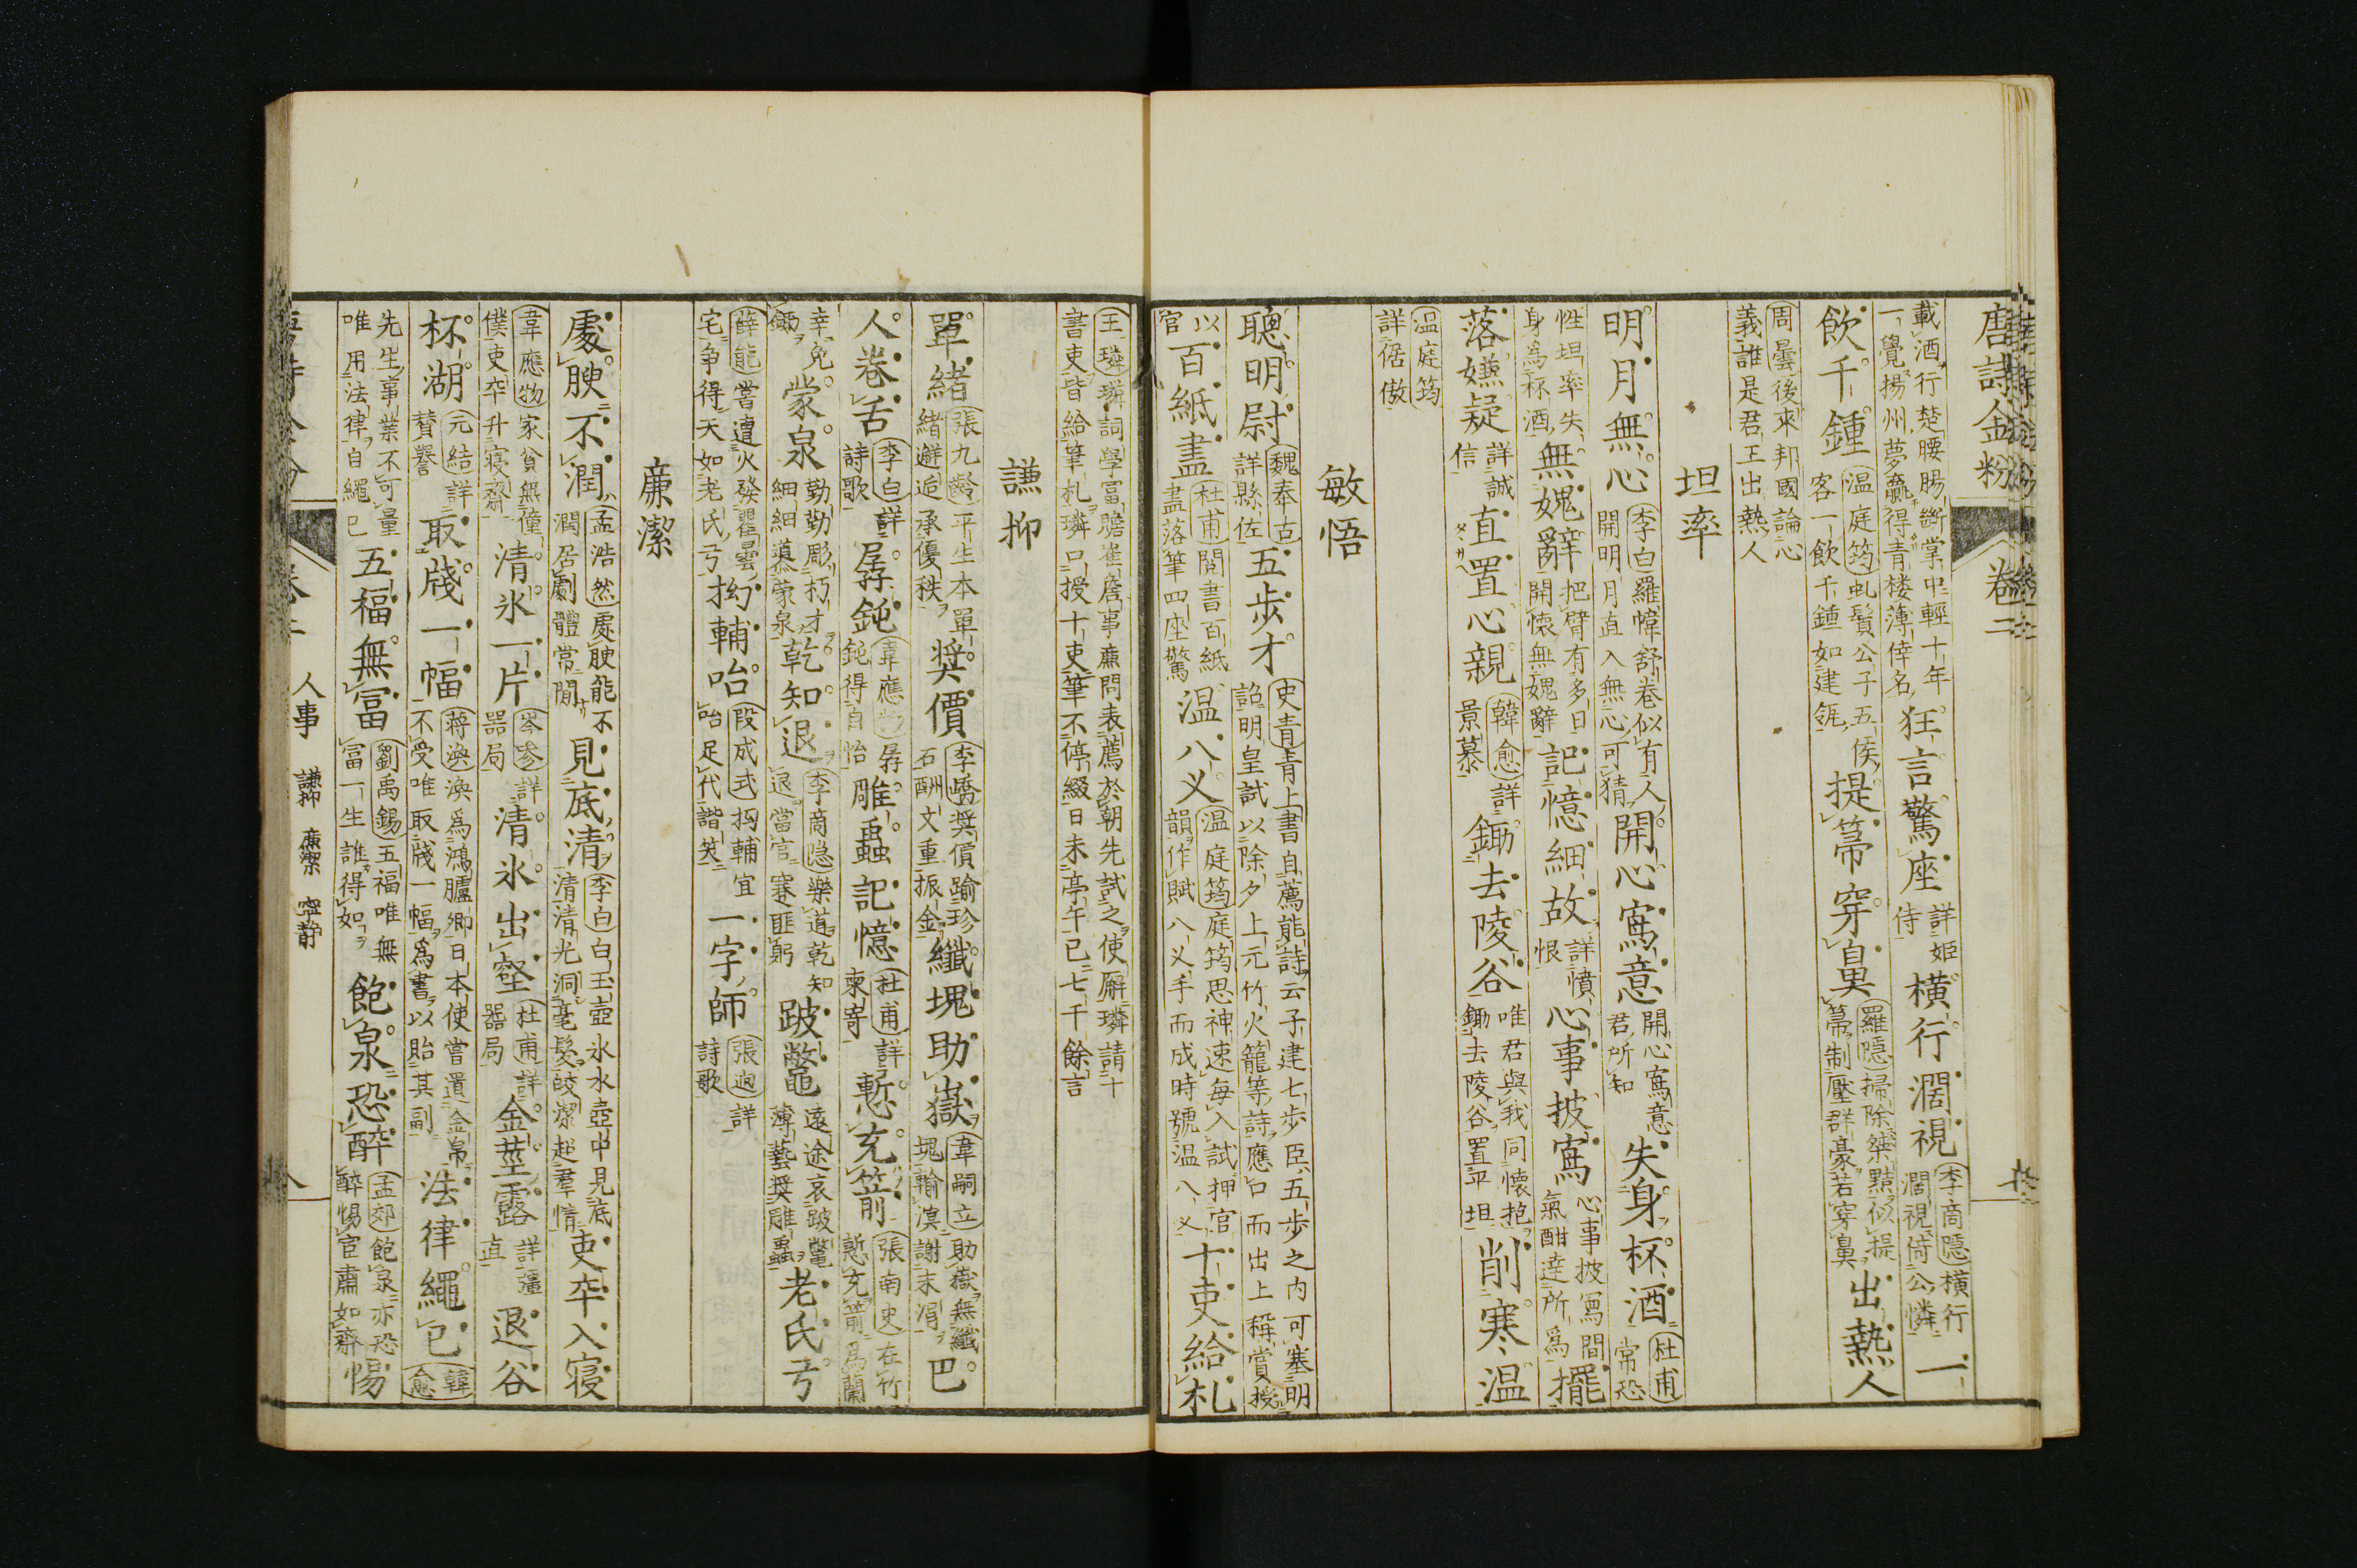 唐詩金粉 卷二
載酒行楚腰腸斷掌中輕十年一覺揚州夢贏得青楼薄倖名 狂言驚座 詳姫侍 横行濶視 李商隠横行濶視倚公憐 一
飲千鍾 温庭筠虬鬚公子五侯客一飲千鍾如建瓴 提箒穿鼻 羅隠掃除桀黠似提箒制壓群豪若穿鼻 出熱人
周曇後來邦國論心義誰是君王出熱人
坦率
明月無心 李白羅幃舒巻似有人開明月直入無心可猜 開心寫意 開心寫意君所知 失身杯酒 杜甫常恐
性坦率失身為杯酒 無媿辭 把臂有多日開懐無媿辭 記憶細故 詳憤恨 心事披寫 心事披寫間氣酣達所為 擺
落嫌疑 詳誠信 直置心親 韓愈詳景慕 鋤去陵谷 唯君與我同懐抱鋤去陵谷置平坦 削寒温
温庭筠詳倨傲
敏悟
聰明尉 魏奉古詳縣佐 五歩才 史青青上書自薦能詩云子建七歩臣五歩之内可塞明詔明皇試以除夕上元竹火籠等詩應口而出上稱賞授
以官 百紙盡 杜甫閲書百紙盡落筆四座驚 温八义 温庭筠庭筠思神速毎入試押官韻作賦八义手而成時號温八义 十吏給札
王璘璘詞學富贍崔詹事廉問表薦於朝先試之使廨璘請十書吏皆給筆札璘口授十吏筆不停綴日未亭午已七千餘言
謙抑
單緒 張九齢平生本單緒邂逅承優秩 奨價 李嶠奨價踰珍石酬文重振金 纖塊助嶽 韋嗣立助嶽無纖塊輸溟謝末涓 巴
人巻舌 李白詳詩歌 孱鈍 韋應物孱鈍得自怡 雕蟲記憶 杜甫詳柬寄 慙充箭 張南史在竹慙充箭為蘭
幸免鋤 蒙泉 勤勤彫朽才細細蕩蒙泉 乾知退 李商隠樂道乾知退當官蹇匪躬 跛鼈 遠途哀跛鼈薄藝奨雕蟲 老氏亏
薛能嘗遭火發瞿曇宅争得天如老氏亏 拗輔咍 段成式拗輔宜咍足代諧笑 一字師 張迥詳詩歌
廉潔
處腴不潤 孟浩然處腴能不潤居劇體常間 見底清 李白白玉壺氷水壺中見底清清光洞毫髪皎潔超羣情 吏卒入寝
韋應物家貧無僮僕吏卒升寝齋 清氷一片 岑参詳器局 清氷出壑 杜甫詳器局 金莖露 詳彊直 退谷
杯湖 元結詳賛譽 取牋一幅 蒋渙渙為鴻臚卿日本使嘗遺金帛不受唯取牋一幅為書以貽其副 法律繩已 韓愈
先生事業不可量唯用法律自繩已 五福無冨 劉禹錫五福唯無冨一生誰得如 飽泉恐醉 孟郊飽泉亦恐醉惕宦肅如齋 惕
人事 謙抑 廉潔 寧静